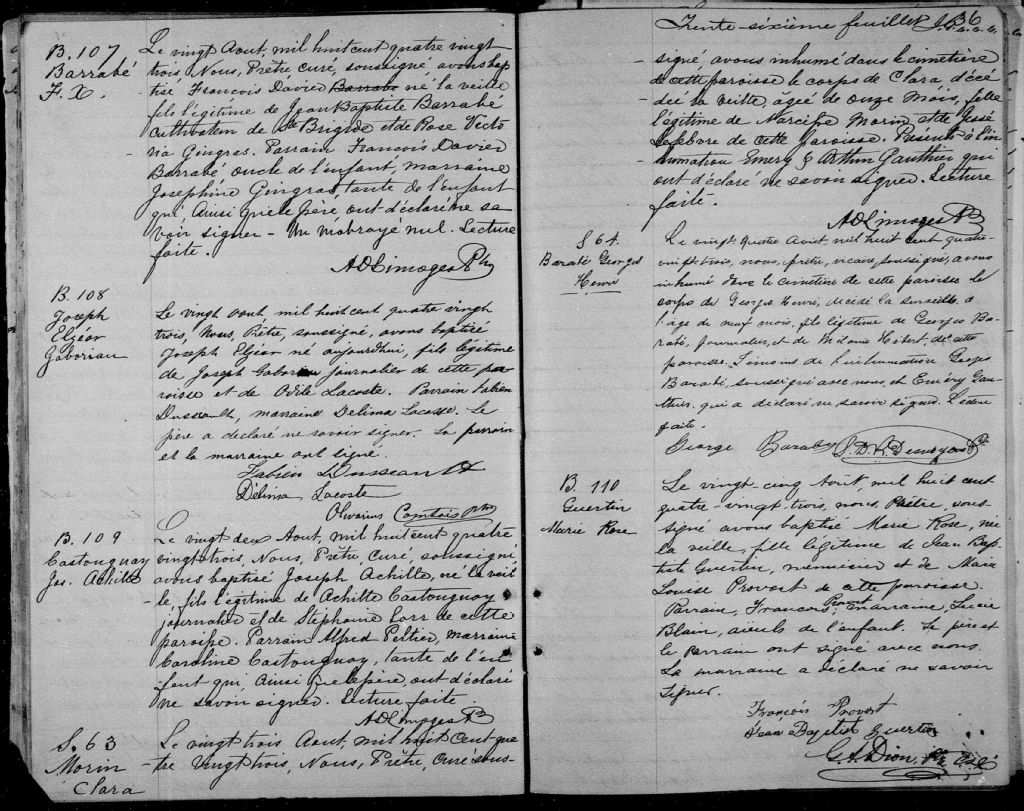 B. 107
Barrabé
F. X.
Le vingt Aout, mil huit cent quatre vingt
trois, Nous, Prêtre, curé, soussigné, avons bap
tisé François Xavier Barrabé né la veille
fils légitime de Jean Baptiste Barrabé
Cultivateur de Ste Brigide et de Rose Victo
ria Gingras. Parrain François Xavier
Barrabé, oncle de l'enfant, marraine
Josephine Gingras, tante de l'enfant
qui, Ainsi que le père, ont déclaré ne sa
voir signer - Un mot rayé nul. Lecture
faite.
A D Limoges Ptre
B. 108
Joseph
Elzéar
Gaboriau
Le vingt aout, mil huit cent quatre vingt
trois, Nous, Prêtre, soussigné, avons baptisé
Joseph Elzéar né aujourd'hui, fils légitime
de Joseph Gaboriau journalier de cette pa
roisse et de Odile Lacoste. Parrain Fabien
Dussault, marraine Delima Lacosse. Le
père a declaré ne savoir signer. Le parrain
et la marraine ont signé.
Fabien Dussault
Délima Lacoste
Olivarius Comtois ptre
B. 109
Castonguay
Jos. Achille
Le vingt deux Aout, mil huit cent quatre
vingt trois, Nous, Prêtre, Curé, soussigné
avons baptisé Joseph Achille, né la veil
le, fils légitime de Achille Castonguay
journalier et de Stéphanie Lorr de cette
paroisse. Parrain Alfred Peltier, marraine
Caroline Castonguay, tante de l'en
fant qui, Ainsi que le père, ont déclaré
ne savoir signer. Lecture faite.
A D Limoges Ptre
S. 63
Morin
Clara
Le vingt trois Aout, mil huit cent qua
tre vingt trois, Nous, Prêtre, Curé sous-
Trente-sixième feuillet 36
signé, avons inhumé dans le cimetière
de cette paroisse le corps de Clara, décé
dée la veille, âgée de onze mois, fille
légitime de Narcisse Morin et de Jessé
Lefebvre de cette paroisse. Présents à l'in
humation Emery & Arthur Gauthier qui
ont déclaré ne savoir signer. Lecture
faite.
A D Limoges Ptre
S 64.
Baraté Georges
Henri
Le vingt quatre Aout, mil huit cent quatre
vingt trois, nous, prêtre, vicaire, soussigné, avons
inhumé dans le cimetière de cette paroisse le
corps de Georges Henri, décédé la surveille, à
l'age de neuf mois, fils légitime de Georges Ba
raté, journalier, et de M. Louise Hébert de cette
paroisse. Témoins de l'inhumation Georges
Baraté, soussigné avec nous, et Eméry Gau
thier, qui a déclaré ne savoir signer. Lecture
faite.
George Baraby
B 110
Guertin
Marie Rose
Le vingt-cinq Aout, mil huit cent
quatre-vingt-trois, nous, Prêtre, sous
signé avons baptisé Marie Rose, née
la veille, fille légitime de Jean Bap
tiste Guertin, menuisier et de Marie
Louise Provost de cette paroisse.
Parrain, François Provost, marraine, Lucie
Blain, aïeuls de l'enfant. Le père et
le Parrain ont signé avec nous.
La marraine a déclaré ne savoir
signer.
François Provost
Jean Baptist Guertin
G. A. Dion, Ptre Curé